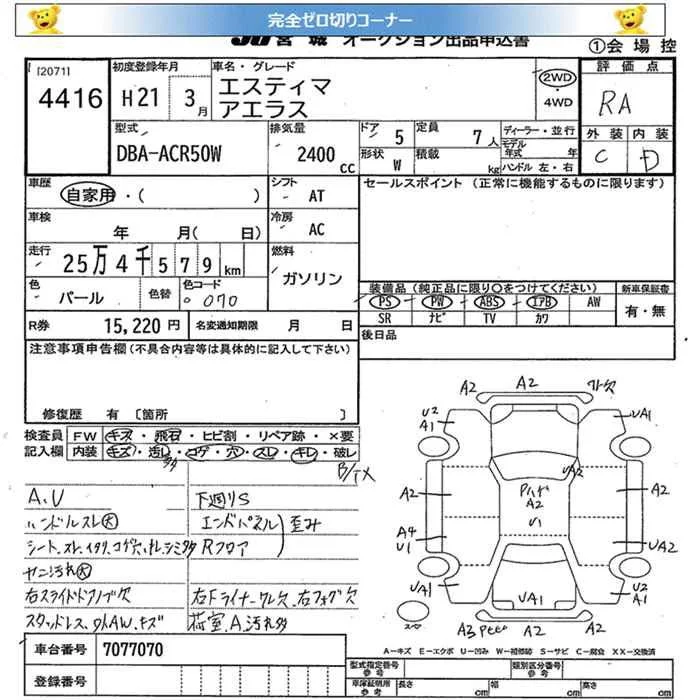 完全ゼロ切りコーナー
JU 宮城 オークション出品申込書
①会場控
[2071]
4416
初度登録年月
H21 3月
車名・グレード
エスティマ
アエラス
2WD
・4WD
評価点
RA
外装 内装
C D
型式
DBA-ACR50W
排気量
2400cc
ドア 5
形状 W
定員 7人
積載 kg
ディーラー・並行
モデル年式 年
ハンドル 左・右
車歴
自家用・( )
シフト
AT
セールスポイント (正常に機能するものに限ります)
車検
年 月(日)
冷房
AC
走行
25万4千579km
燃料
ガソリン
色
パール
色替
色コード
070
装備品 (純正品に限り○をつけてください)
新車保証書
PS PW ABS エアB AW
SR ナビ TV カワ
有・無
R券
15,220円
名変通知期限 月 日
後日品
注意事項申告欄 (不具合内容等は具体的に記入して下さい)
修復歴 有 [箇所 ]
検査員記入欄
FW キズ・飛石・ヒビ割・リペア跡・×要
内装 キズ・汚レ・コゲ・穴・スレ・キレ・破レ
多
A、U
ハンドルスレ大
ヤニ汚れ大
右スライドドアノブ欠
スタッドレス、社外AW、キズ
下廻りS
エンドパネル
Rフロア
歪み
右Fライナークレ欠、右フォグ欠
荷室、A、汚れ多
A2
A2
U2
A1
UA1
A2
UA2
A2
A2
U1
A4
U1
A2
UA2
UA1
UA1
U2
A1
スペア
A3
A2
A2
A－キズ E－エクボ U－凹み W－補修跡 S－サビ C－腐食 XX－交換済
車台番号
7077070
登録番号
型式指定番号
参考
類別区分番号
参考
車庫証明用
参考
長さ cm
幅 cm
高さ cm